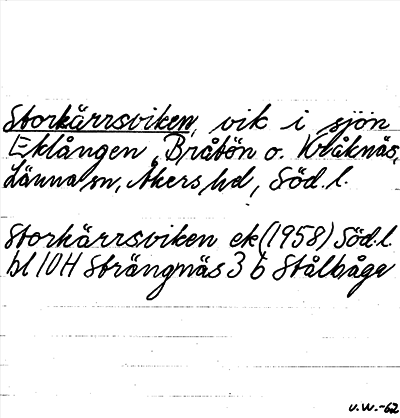 Storkärrsviken, vik i sjön
Eklången, Bråtön o. Kråknäs,
Länna sn, Åkers hd, Söd. l.
Storkärrsviken ek (1958) Söd. l.
bl 10H Strängnäs 3 b Stålboga
v.W.-62